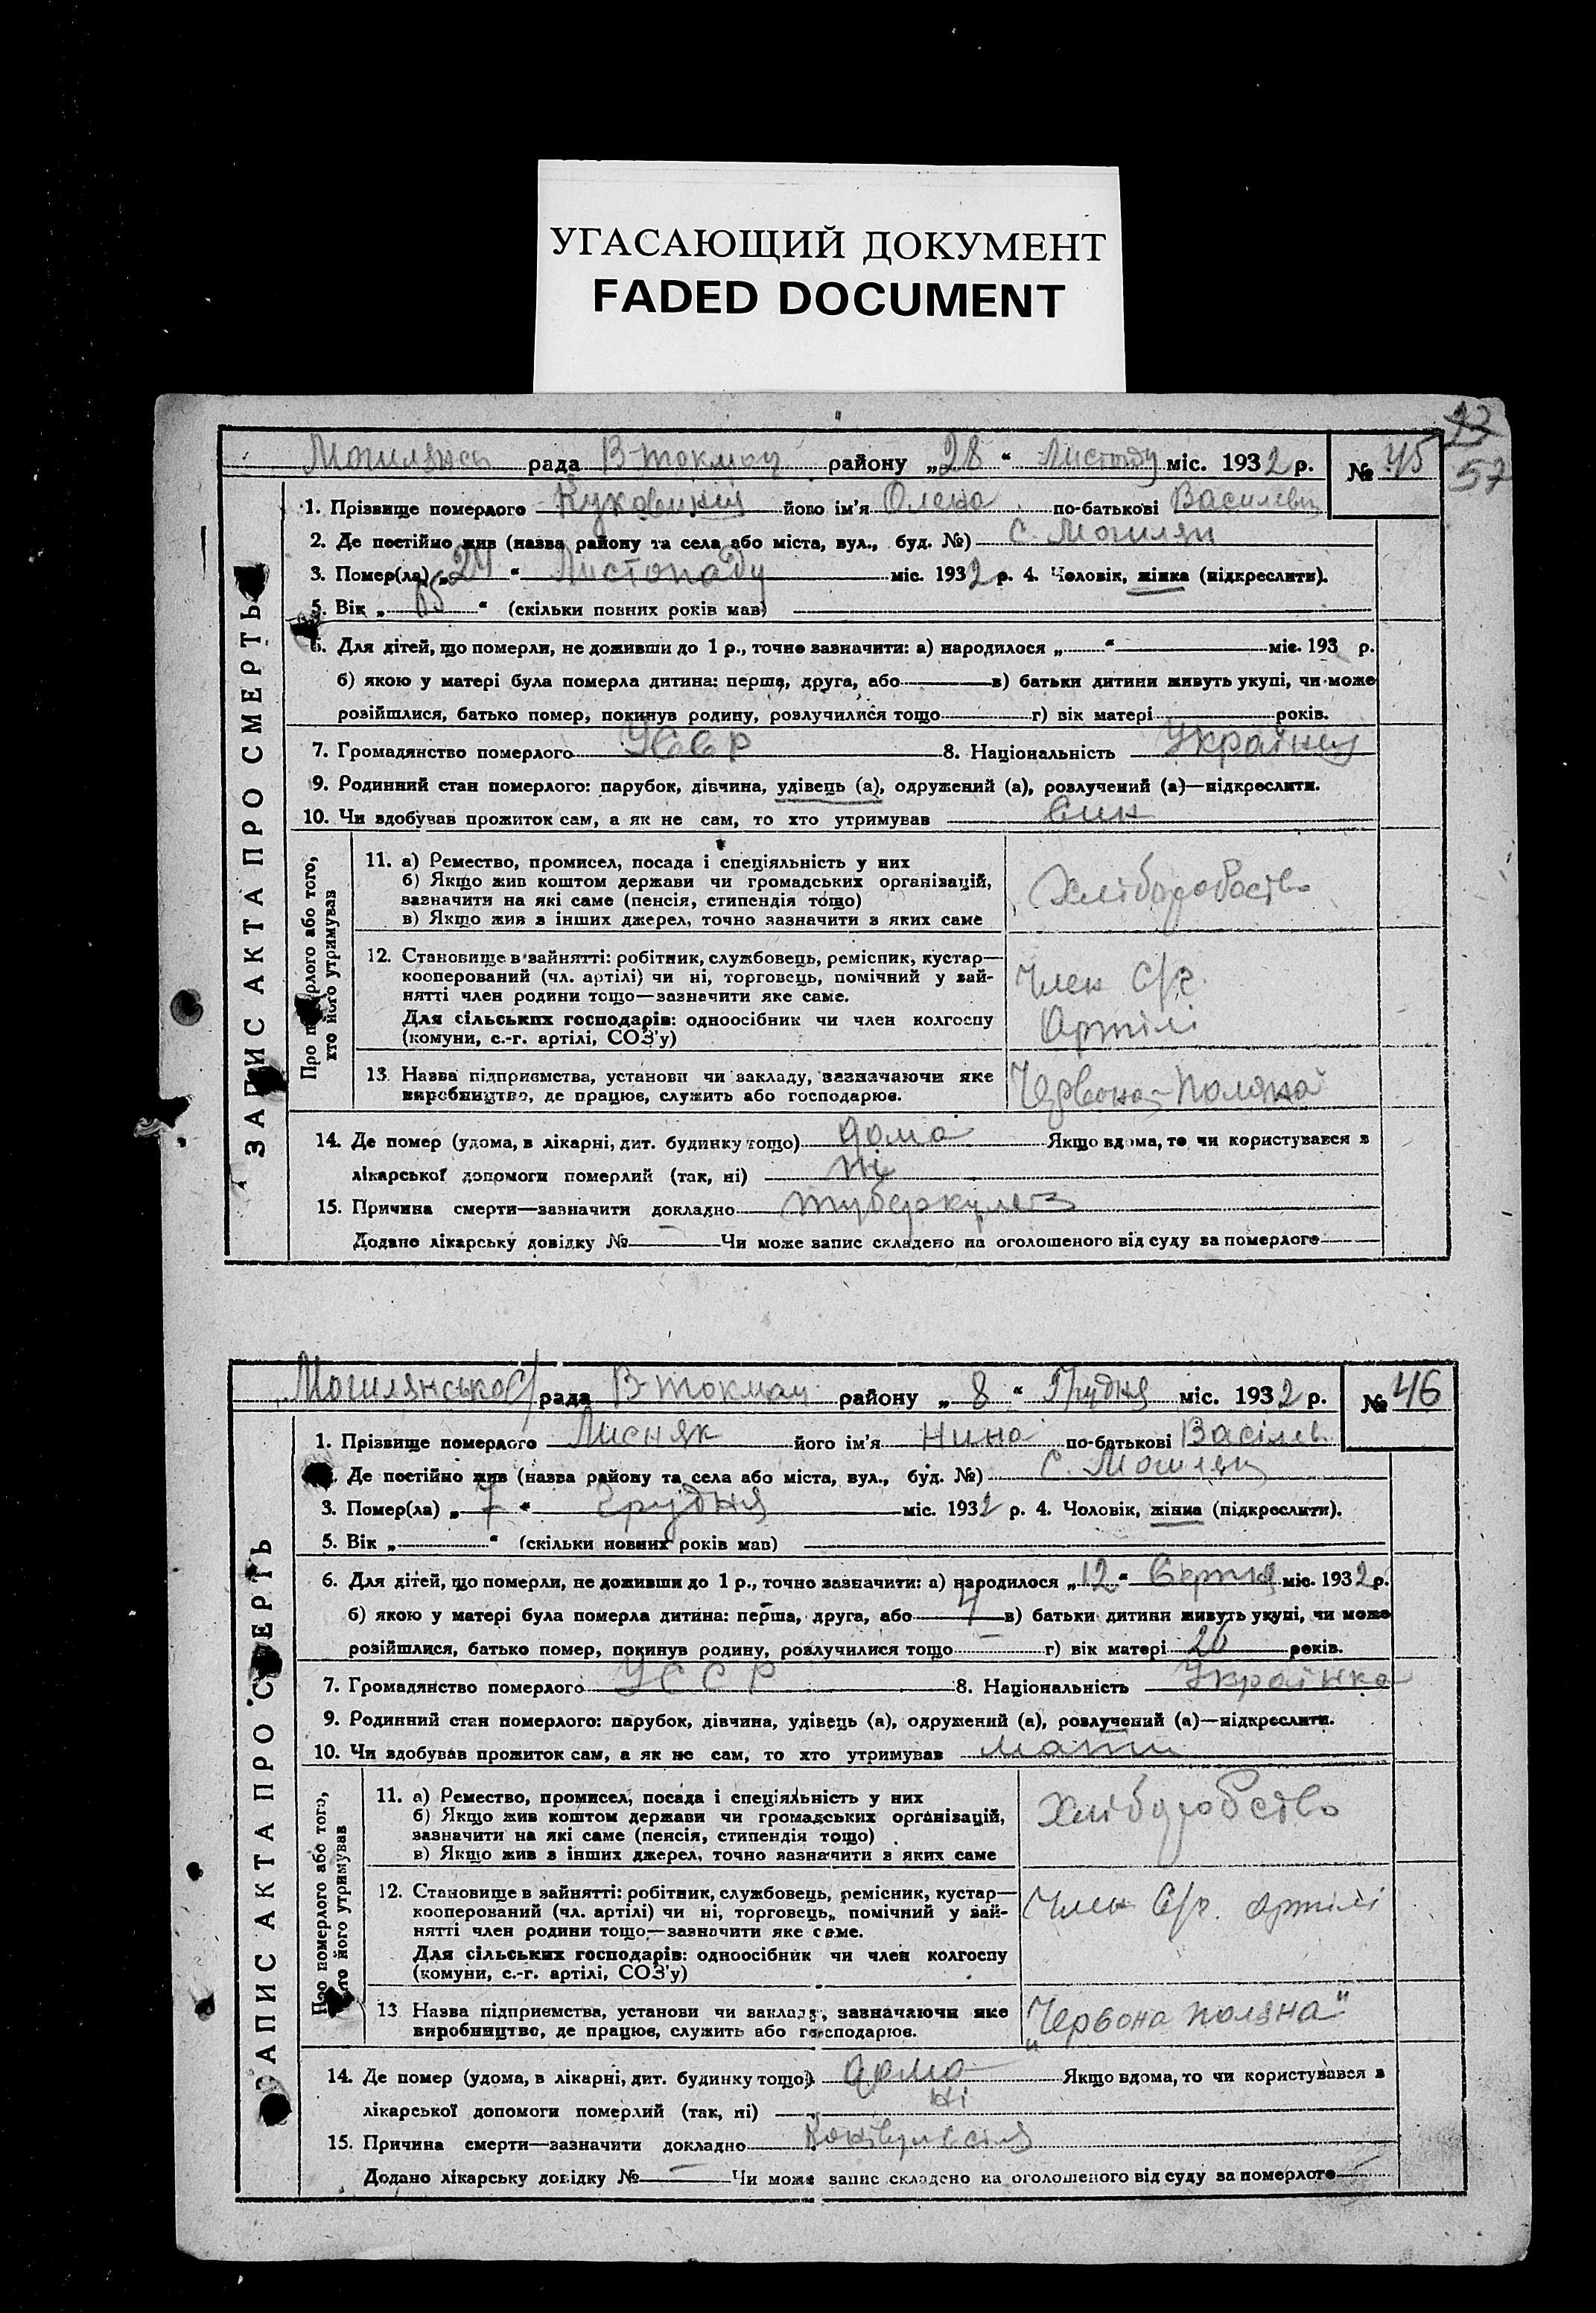 УГАСАЮЩИЙ ДОКУМЕНТ
FADED DOCUMENT
57
рада В-Токмац району „28“ Листопаду міс. 1932 р. № 45
1. Прізвище померлого його ім'я Олена по-батькові Василевн
2. Де постійно жив (назва району та села або міста, вул., буд. №) с. Могиляни
3. Помер(ла) „24“ Листопаду міс. 1932 р. 4. Чоловік, жінка (підкреслити).
5. Вік „65“ (скільки повних років мав)
6. Для дітей, що померли, не доживши до 1 р., точно зазначити: а) народилося „ “ міс. 193 р.
б) якою у матері була померла дитина: перша, друга, або в) батьки дитини живуть укупі, чи може
розійшлися, батько помер, покинув родину, розлучилися тощо г) вік матері років.
7. Громадянство померлого УССР 8. Національність Українец
9. Родинний стан померлого: парубок, дівчина, удівець (а), одружений (а), розлучений (а)—підкреслити.
10. Чи здобував прожиток сам, а як не сам, то хто утримував Син
ЗАПИС АКТА ПРО СМЕРТЬ
Про померлого або того,
хто його утримував
11. а) Ремество, промисел, посада і спеціяльність у них
б) Якщо жив коштом держави чи громадських організацій,
зазначити на які саме (пенсія, стипендія тощо)
в) Якщо жив з інших джерел, точно зазначити з яких саме
Хліборобство
12. Становище в зайнятті: робітник, службовець, ремісник, кустар—
кооперований (чл. артілі) чи ні, торговець, помічний у зай-
нятті член родини тощо—зазначити яке саме.
Для сільських господарів: одноосібник чи член колгоспу
(комуни, с.-г. артілі, СОЗ'у)
Член С/г.
Артілі
13 Назва підприємства, установи чи закладу, зазначаючи яке
виробництво, де працює, служить або господарює.
Червона-Поляна
14. Де помер (удома, в лікарні, дит. будинку тощо) дома Якщо вдома, то чи користувався з
лікарської допомоги померлий (так, ні) ні
15. Причина смерти—зазначити докладно туберкульоз
Додано лікарську довідку № — Чи може запис складено на оголошеного від суду за померлого —
Могилянсько С/рада В-Токмац району „8“ Грудня міс. 1932 р. № 46
1. Прізвище померлого Лисняк його ім'я Нина по-батькові Васілев.
2. Де постійно жив (назва району та села або міста, вул., буд. №) с. Могиляни
3. Помер(ла) „7“ Грудня міс. 1932 р. 4. Чоловік, жінка (підкреслити).
5. Вік „ “ (скільки повних років мав)
6. Для дітей, що померли, не доживши до 1 р., точно зазначити: а) народилося „12“ Серпня міс. 1932 р.
б) якою у матері була померла дитина: перша, друга, або 4 в) батьки дитини живуть укупі, чи може
розійшлися, батько помер, покинув родину, розлучилися тощо г) вік матері 26 років.
7. Громадянство померлого УССР 8. Національність Українка
9. Родинний стан померлого: парубок, дівчина, удівець (а), одружений (а), розлучений (а)—підкреслити.
10. Чи здобував прожиток сам, а як не сам, то хто утримував мати
ЗАПИС АКТА ПРО СМЕРТЬ
Про померлого або того,
хто його утримував
11. а) Ремество, промисел, посада і спеціяльність у них
б) Якщо жив коштом держави чи громадських організацій,
зазначити на які саме (пенсія, стипендія тощо)
в) Якщо жив з інших джерел, точно зазначити з яких саме
Хліборобство
12. Становище в зайнятті: робітник, службовець, ремісник, кустар—
кооперований (чл. артілі) чи ні, торговець, помічний у зай-
нятті член родини тощо—зазначити яке саме.
Для сільських господарів: одноосібник чи член колгоспу
(комуни, с.-г. артілі, СОЗ'у)
Член С/г. артілі
13 Назва підприємства, установи чи закладу, зазначаючи яке
виробництво, де працює, служить або господарює.
„Червона поляна"
14. Де помер (удома, в лікарні, дит. будинку тощо) дома Якщо вдома, то чи користувався з
лікарської допомоги померлий (так, ні) ні
15. Причина смерти—зазначити докладно Конівульсія
Додано лікарську довідку № — Чи може запис складено на оголошеного від суду за померлого —